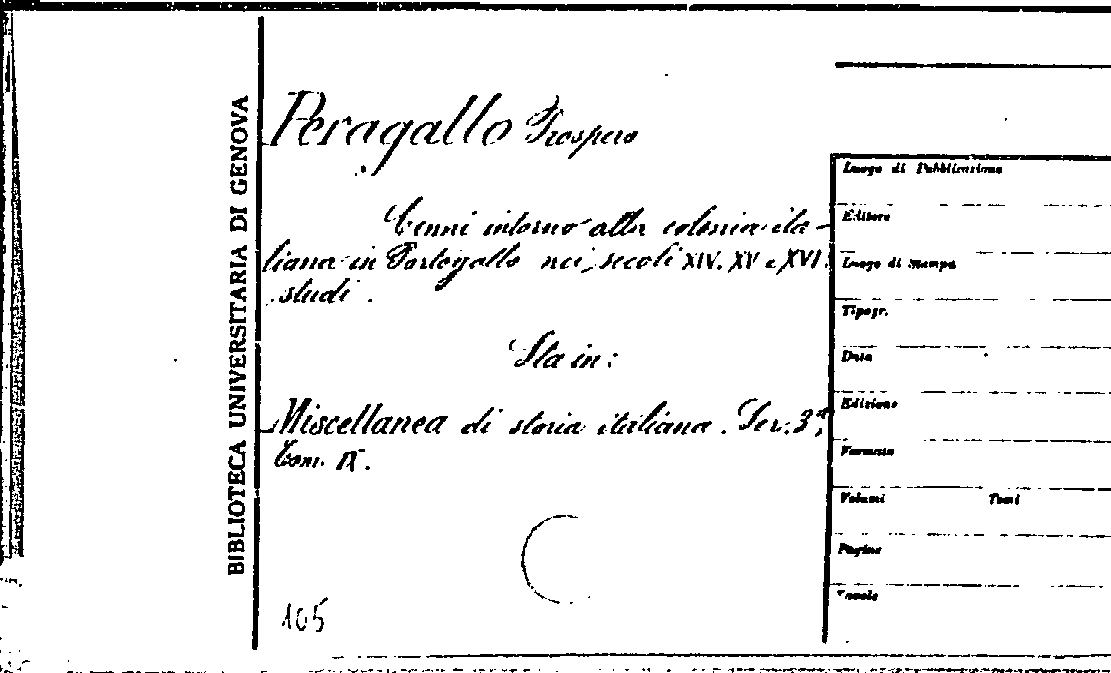 BIBLIOTECA UNIVERSITARIA DI GENOVA
Peragallo Prospero
Cenni intorno alla colonia ita-
liana in Portogallo nei secoli XIV. XV e XVI.
studi.
Sta in:
Miscellanea di storia italiana. Ser. 3ª,
Tom. IX.
105
Luogo di Pubblicazione
Editore
Luogo di Stampa
Tipogr.
Data
Edizione
Formato
Volumi Tomi
Pagine
Tavole